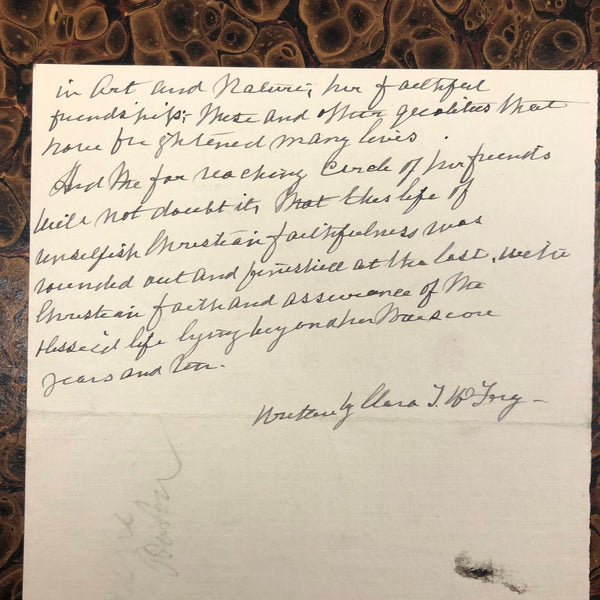 in Art and Nature; her faithful
friendships; these and other qualities that
have brightened many lives.
And the far reaching circle of her friends
will not doubt it, that this life of
unselfish Christian faithfulness was
rounded out and finished at the last, with
Christian faith and assurance of the
blessed life lying beyond her threescore
years and ten.
Written by Clara T.